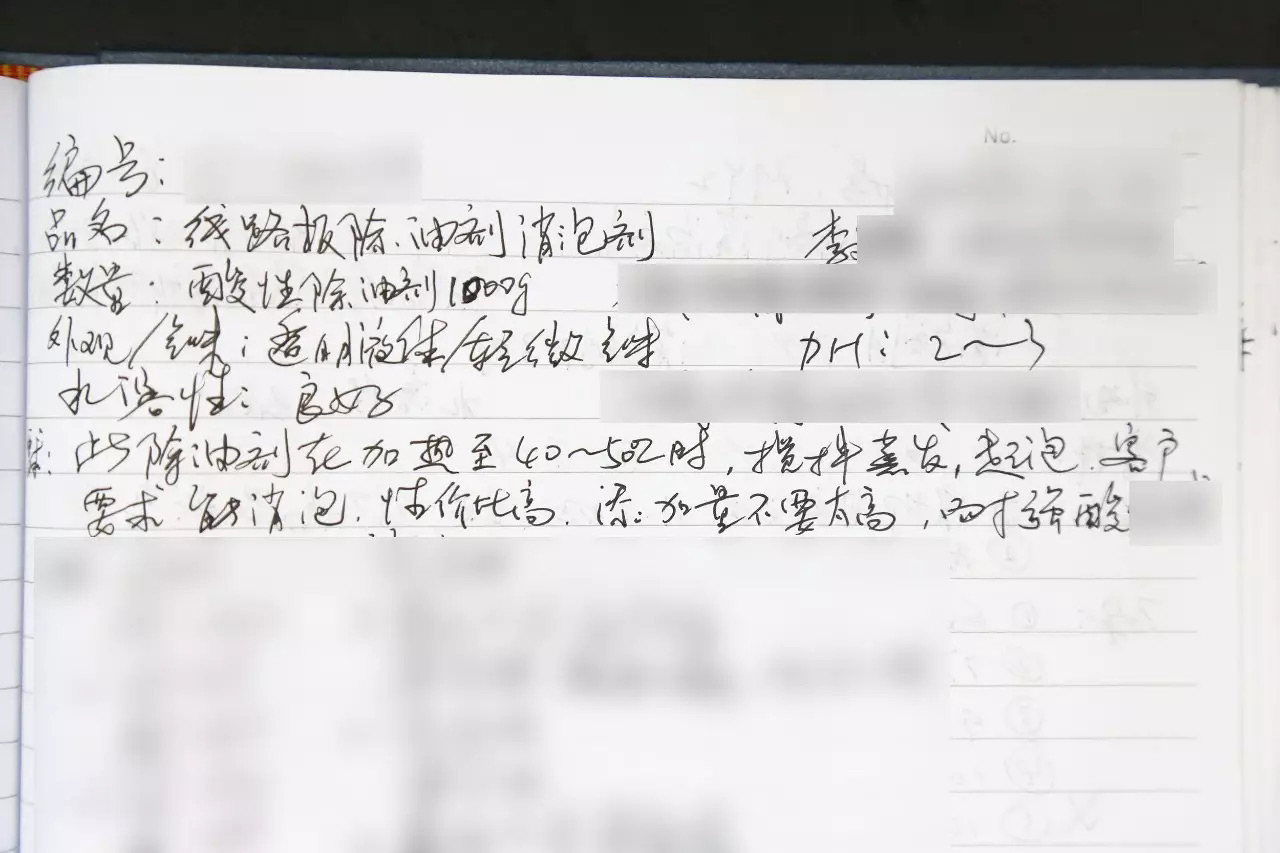 No.
编号:
品名: 线路板除油剂消泡剂 李
数量: 酸性除油剂1000g
外观/气味: 透明液体/轻微气味 PH: 2~3
水溶性: 良好
此除油剂在加热至40~50℃时,搅拌蒸发,起泡.客户
要求能消泡.性价比高.添加量不要太高,耐强酸